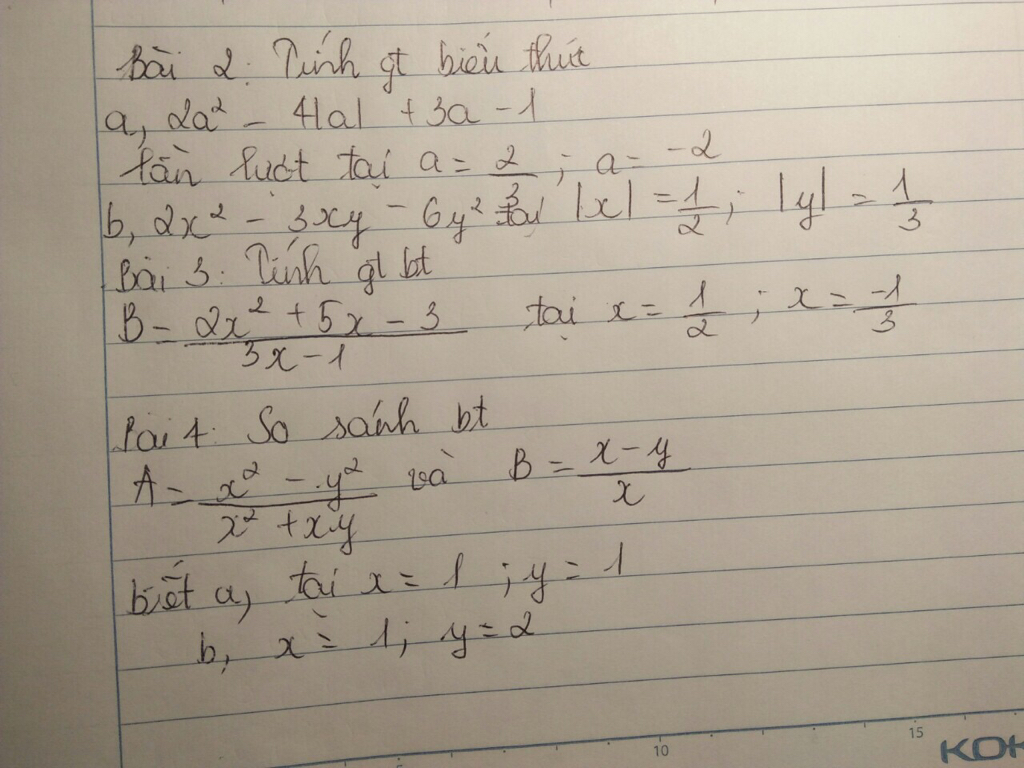 Bài 2: Tính gt biểu thức
a, 2a² - 4|a| + 3a - 1
lần lượt tại a = 2/3 ; a = -2
b, 2x² - 3xy - 6y² tại |x| = 1/2 ; |y| = 1/3
Bài 3: Tính gt bt
B = (2x² + 5x - 3)/(3x - 1) tại x = 1/2 ; x = -1/3
Bài 4: So sánh bt
A = (x² - y²)/(x² + xy) và B = (x - y)/x
biết a, tại x = 1 ; y = 1
b, x = 1; y = 2
10 15 KOK